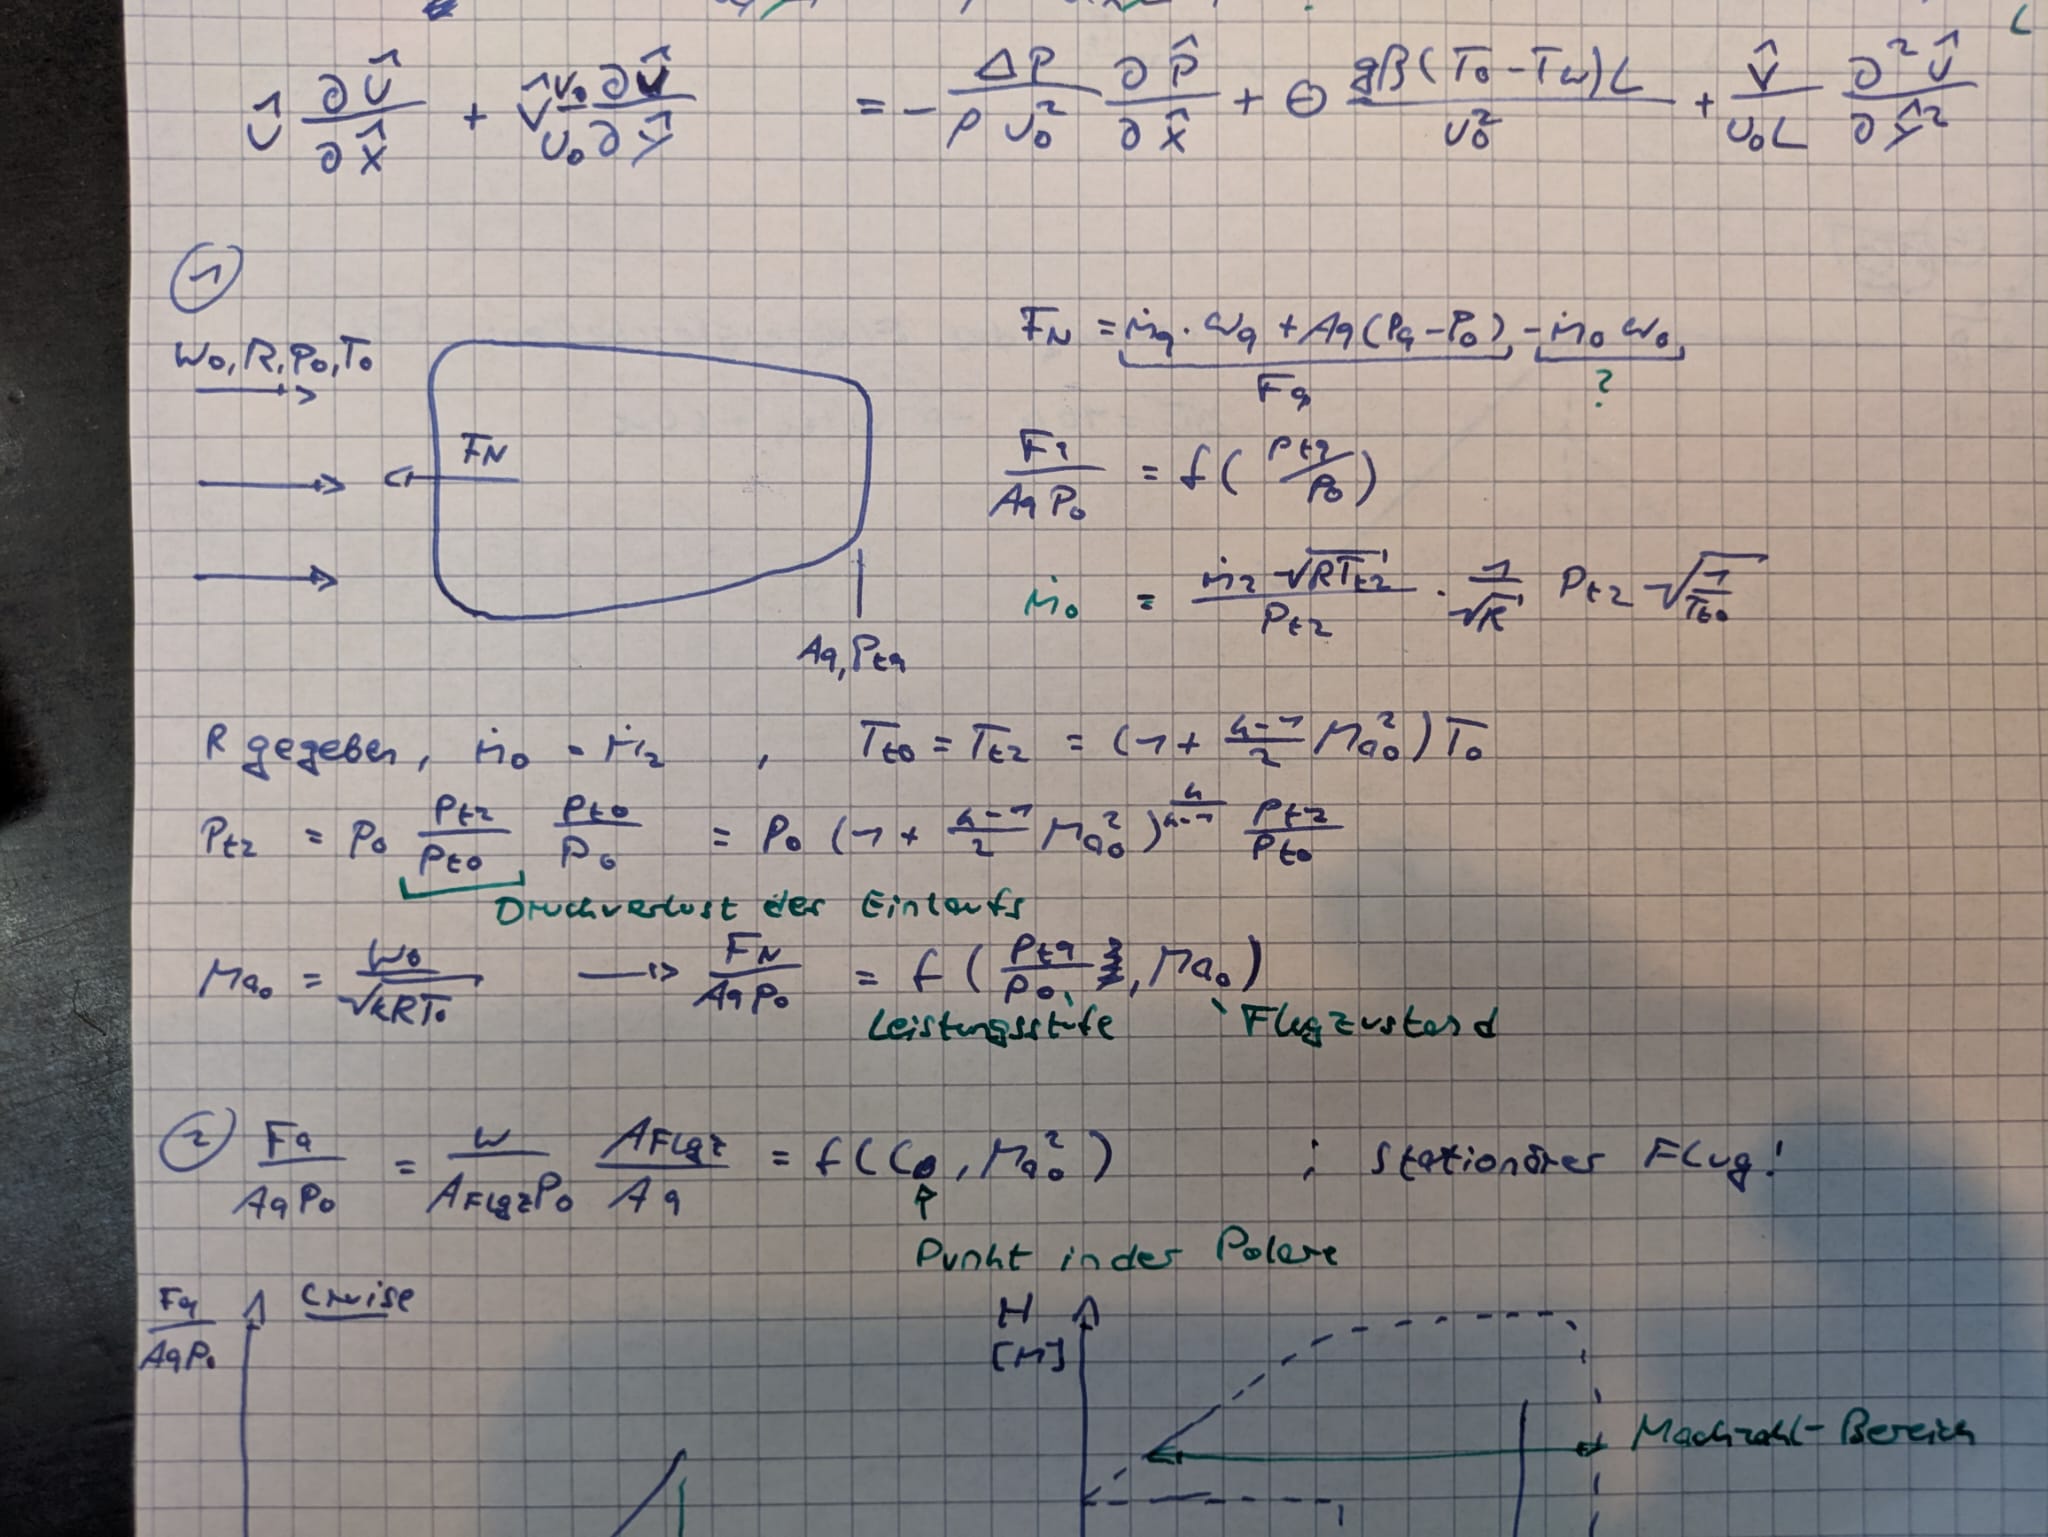 û ∂û/∂x̂ + v̂ v₀/u₀ ∂û/∂ŷ = - ΔP/(ρ u₀²) ∂p̂/∂x̂ + Θ gβ(T₀-Tw)L/u₀² + ν/(u₀L) ∂²û/∂ŷ²
①
W₀, R, P₀, T₀
F_N = ṁ₉·W₉ + A₉(P₉-P₀) - ṁ₀W₀
F₉
?
F_N
F₉/(A₉P₀) = f(Pt9/P₀)
ṁ₀ = ṁ₂√(RTt2)/Pt2 · 1/√R Pt2 √(1/Tt0)
A₉, Pt9
R gegeben, ṁ₀ = ṁ₂ , Tt0 = Tt2 = (1 + (κ-1)/2 Ma₀²) T₀
Pt2 = P₀ Pt2/Pt0 Pt0/P₀ = P₀ (1 + (κ-1)/2 Ma₀²)^(κ/(κ-1)) Pt2/Pt0
Druckverlust des Einlaufs
Ma₀ = W₀/√(κRT₀) → F_N/(A₉P₀) = f(Pt9/P₀, Ma₀)
Leistungsstufe Flugzustand
② F₉/(A₉P₀) = W/(A_Flgz P₀) A_Flgz/A₉ = f(C , Ma₀²) ; stationärer Flug!
Punkt in der Polare
F₉/(A₉P₀) Cruise
H
[M]
Machzahl-Bereich